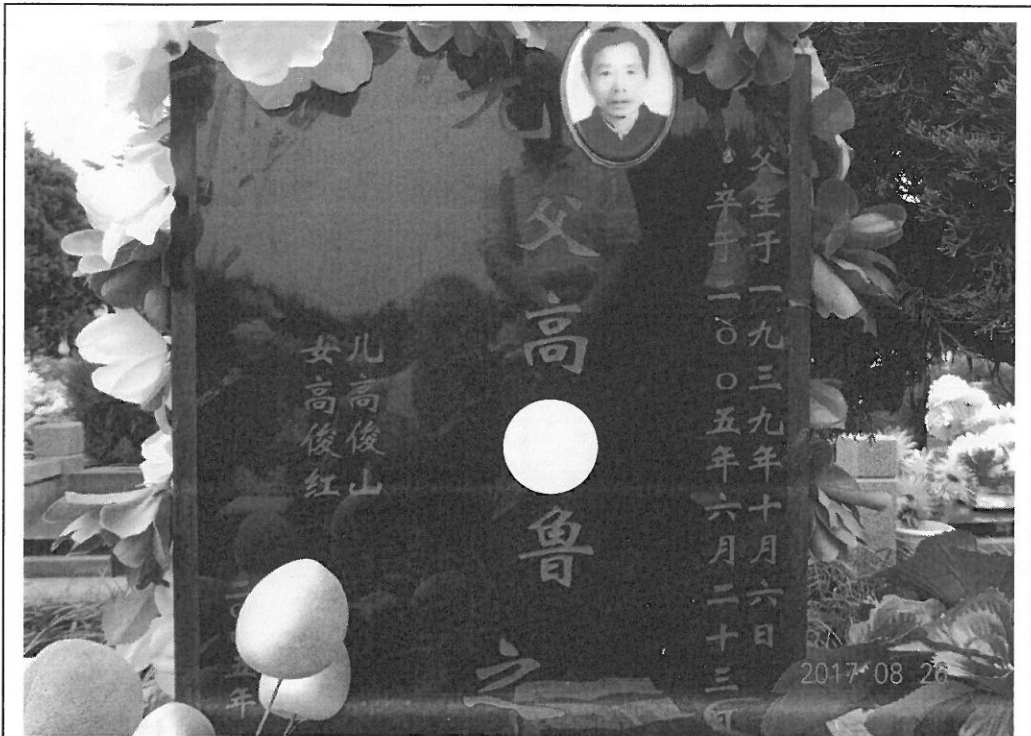 父生于一九三九年十月六日
卒于二〇〇五年六月二十三日
先父高鲁之
儿高俊山
女高俊红
二〇 五年
2017 08 26